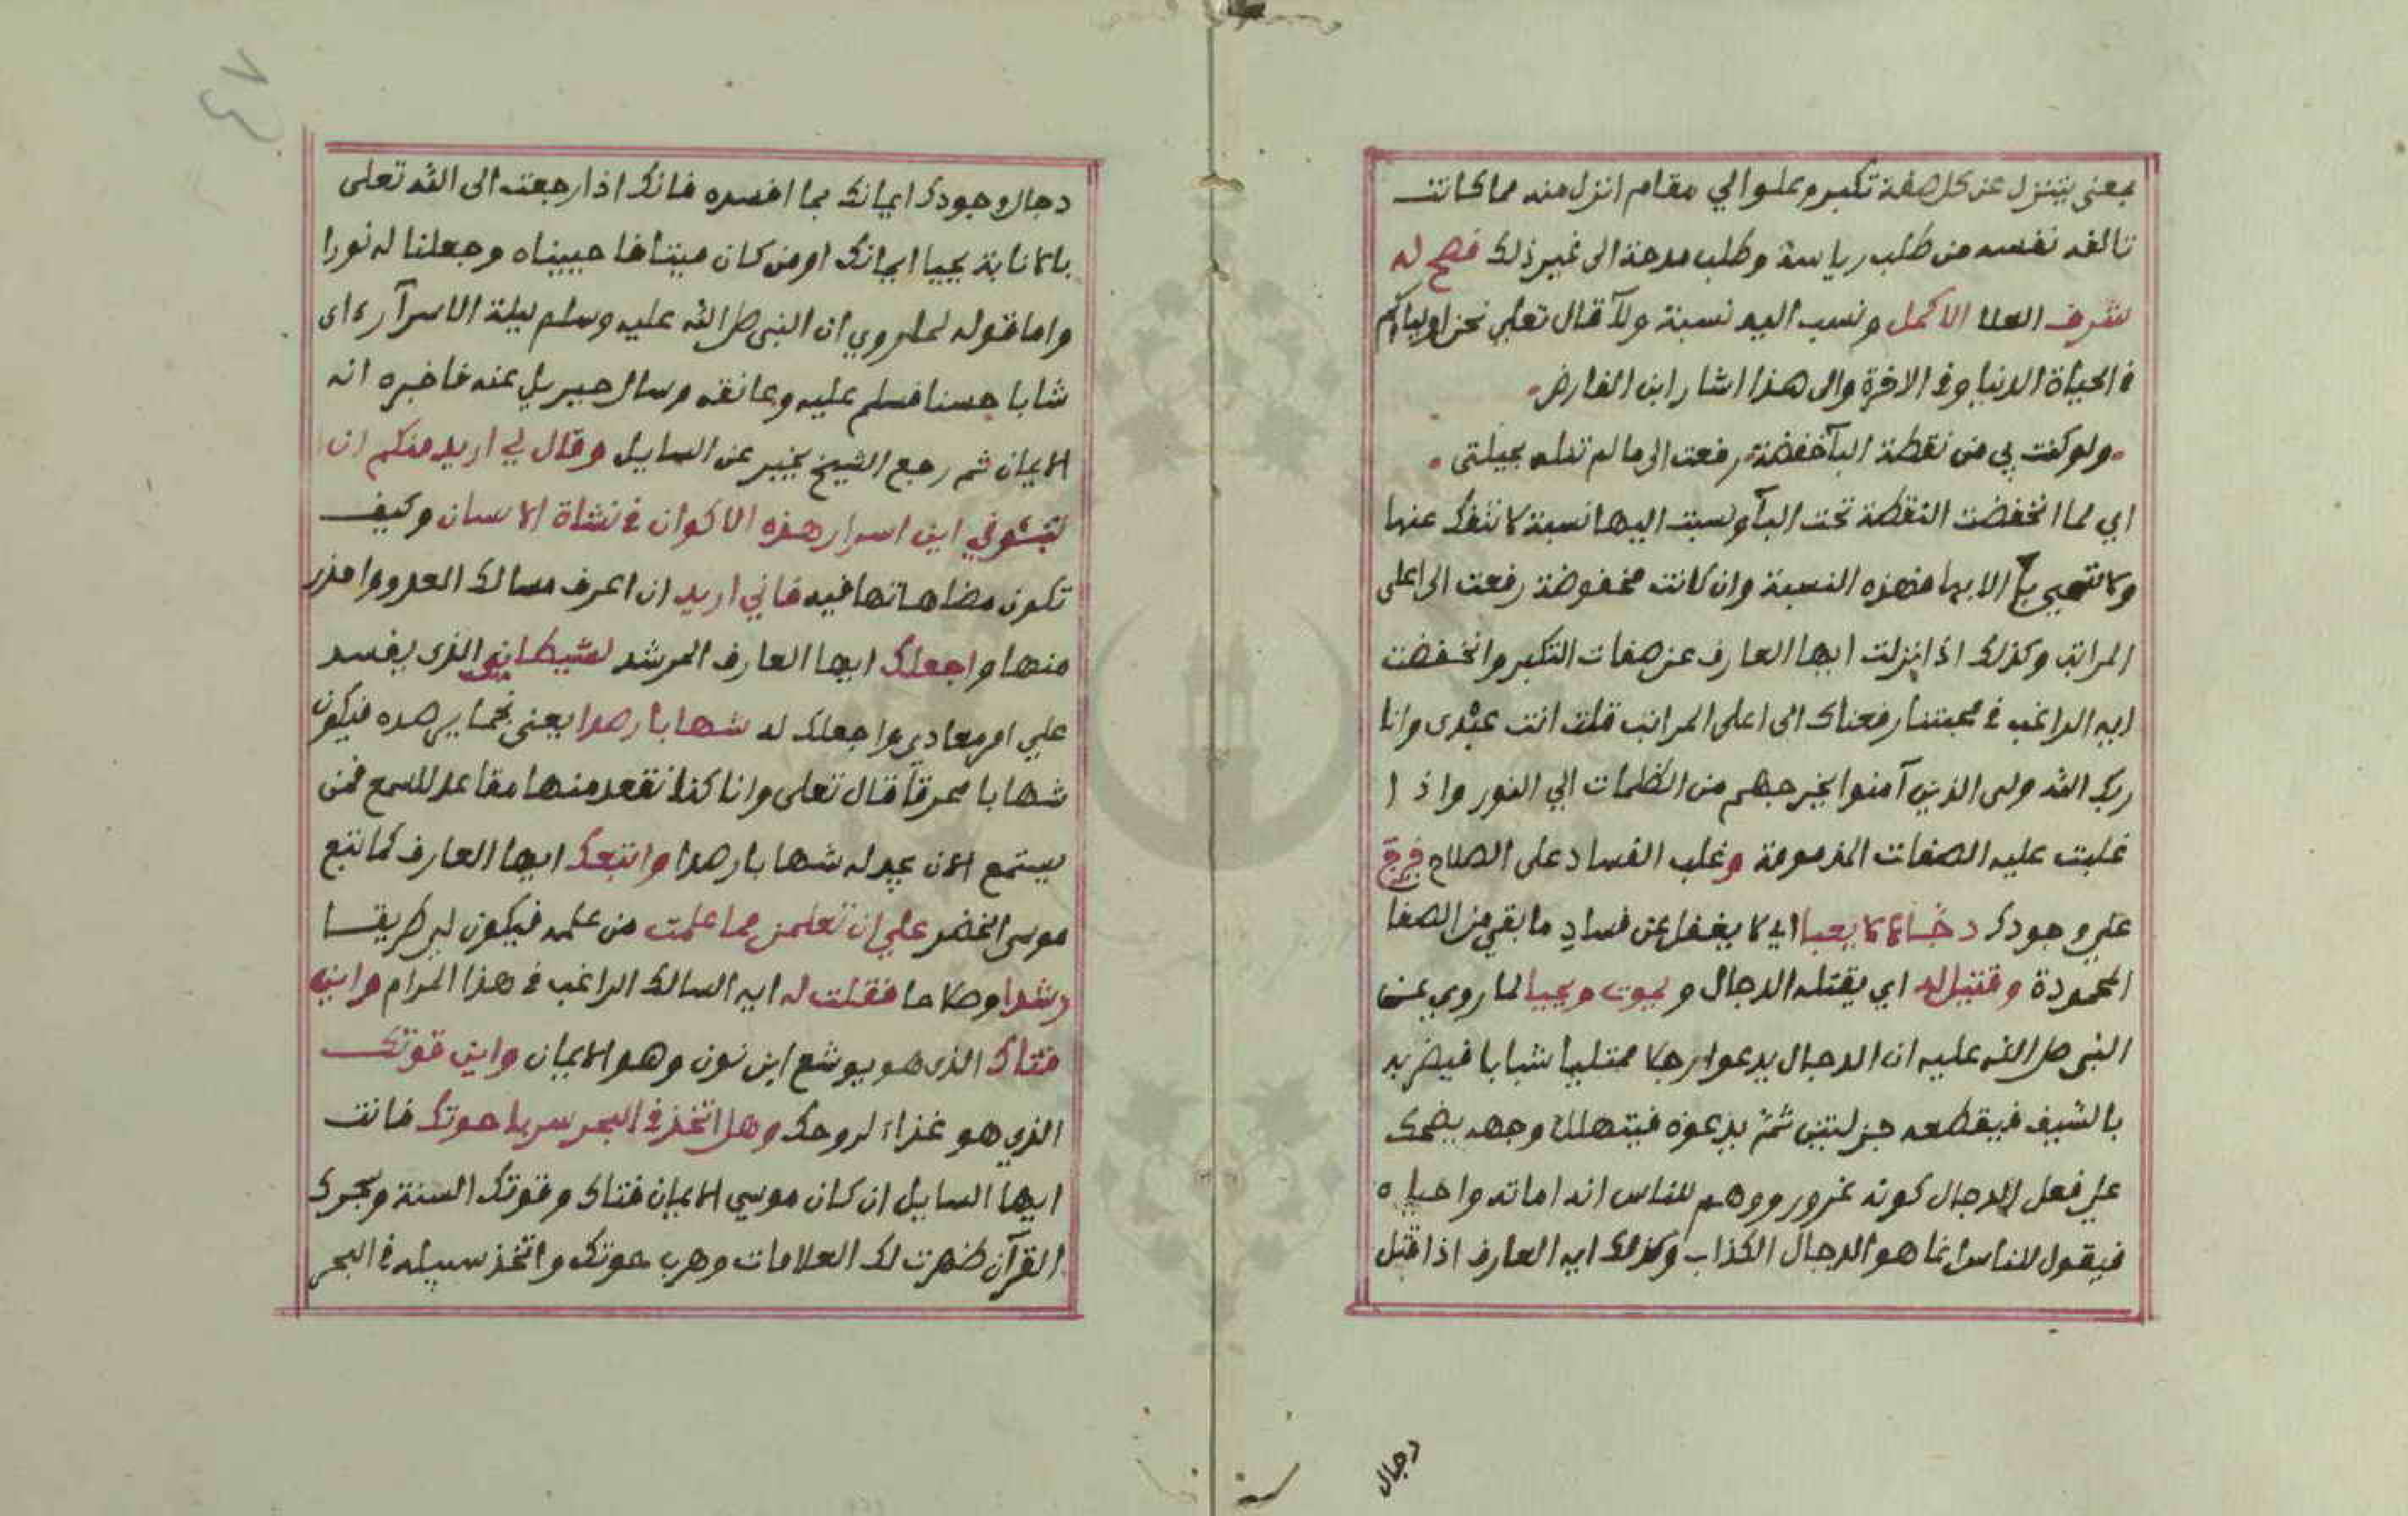 بمعنى يتنزل عن كل صفة تكبر وعلو الي مقام انزل منه مما كانت
تالفه نفسه من طلب رياسة وطلب مدحة الى غير ذلك فصح له
شرف العلا الاكمل ونسب اليه نسبة ولآ قال تعلي نحن اولياكم
في الحياة الدنيا وفي الاخرة والى هذا اشار ابن الفارض
ولو كنت بي من نقطة البآ خفضة رفعت الى ما لم تنله بحيلتي
اي لما انخفضت النقطة تحت البآ ونسبت اليها نسبة لا تنفك عنها
ولا الا بها فهذه النسبة وان كانت مخفوضة رفعت الى اعلى
المراتب وكذلك اذا نزلت ايها العارف عن صفات التكبر وانخفضت
ايه الراغب في محبتنا رفعناك الى اعلى المراتب قلت انت عبدى وانا
ربك الله ولى الذين آمنوا يخرجهم من الظلمات الي النور واذا
غلبت عليه الصفات المذمومة وغلب الفساد على الصلاح فرج
علي وجودك دجالا لا يعبا اي لا يغفل عن فسادِ ما بقي من الصفا
المحمودة وقتيل له اي يقتله الدجال ويموت ويحيا لما روي عن
النبي صلى الله عليه ان الدجال يدعوا رجلا ممتليا شبابا فيضربه
بالسيف فيقطعه جزلتين ثم يدعوه فيتهلل وجهه يضحك
على فعل الدجال كونه غرور ووهم للناس انه اماته واحياه
فيقول للناس انما هو الدجال الكذاب وكذلك ايه العارف اذا قتل
دجال
دجال وجودك ايمانك بما افسده فانك اذا رجعت الى الله تعلى
بالانابة يحييا ايمانك اومن كان ميتا فاحييناه وجعلنا له نورا
واما قوله لما روي ان النبى صلى الله عليه وسلم ليلة الاسرآ رءاى
شابا حسنا فسلم عليه وعانقه وسال جبريل عنه فاخبره انه
الايمان ثم رجع الشيخ يخبر عن السايل وقال لي اريد منكم ان
اين اسرار هذه الاكوان في نشاة الانسان وكيف
تكون مضاهاتها فيه فاني اريد ان اعرف مسالك العدو واحذر
منها واجعلك ايها العارف المرشد لشيطاني الذى يفسد
علي امر معادي واجعلك له شهابا رصدا يعنى نجما يرصده فيكون
شهابا محرقا قال تعلى وانا كنا نقعد منها مقاعد للسمع فمن
يستمع الان يجد له شهابا رصدا واتبعك ايها العارف كما تتبع
موسى الخضر علي ان تعلمن مما علمت من علمه فيكون لي طريقا
رشدا وصلاحا فقلت له ايه السالك الراغب في هذا المرام واين
فتاك الذى هو يوشع ابن نون وهو الايمان واين قوتك
الذي هو غذاء لروحك وهل اتخذ في البحر سربا حوتك فانت
ايها السايل ان كان موسي الايمان فتاك وقوتك السنة وبحرك
القرآن ظهرت لك العلامات وهرب حوتك واتخذ سبيله في البحر